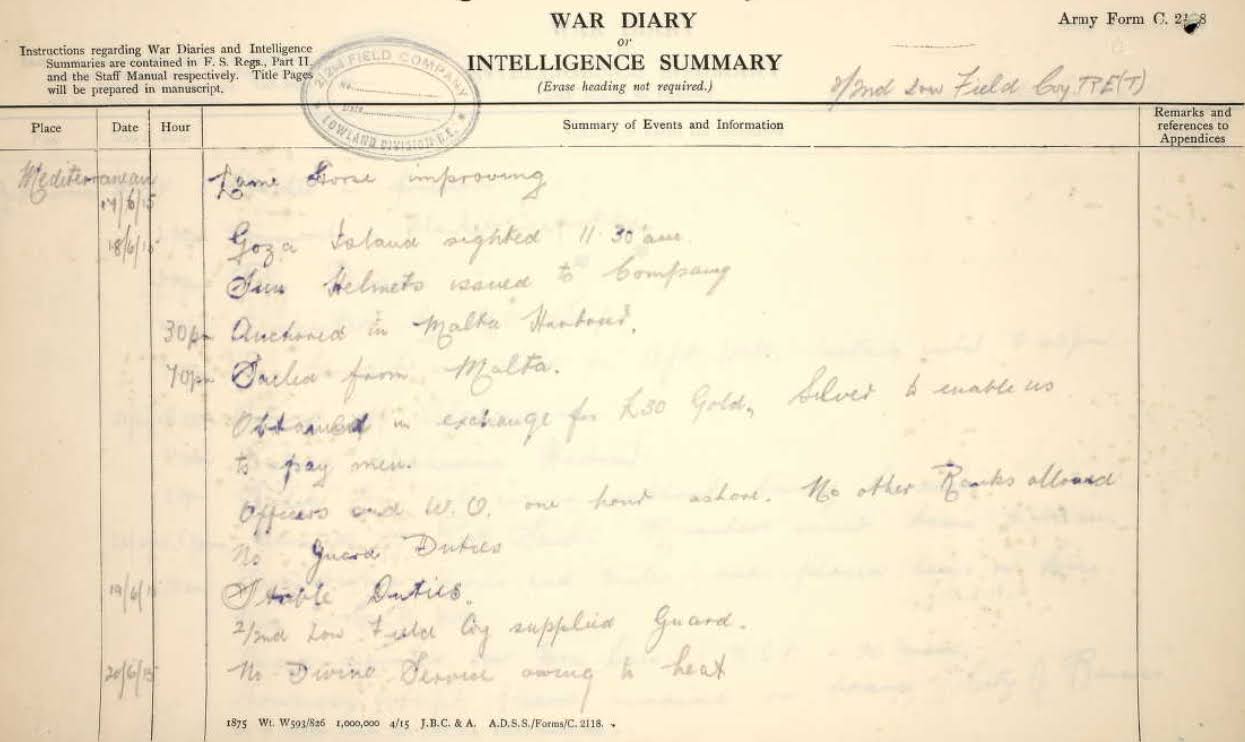 WAR DIARY
or
INTELLIGENCE SUMMARY
(Erase heading not required.)
Army Form C. 2118
Instructions regarding War Diaries and Intelligence
Summaries are contained in F. S. Regs., Part II.
and the Staff Manual respectively. Title Pages
will be prepared in manuscript.
2/2nd FIELD COMPANY
No.
Date
LOWLAND DIVISION R.E.
2/2nd Low Field Coy RE(T)
Place Date Hour Summary of Events and Information Remarks and references to Appendices
Mediterranean 17/6/15 Lame Horse improving
18/6/15 Goza Island sighted 11.30 am.
Sun Helmets issued to Company
30pm Anchored in Malta Harbour.
70pm Sailed from Malta.
Obtained in exchange for £30 Gold, Silver to enable us
to pay men.
Officers and W.O. one hour ashore. No other Ranks allowed
No Guard Duties
19/6/15 Stable Duties.
2/2nd Low Field Coy supplied Guard.
20/6/15 No Divine Service owing to heat
1875 Wt. W593/826 1,000,000 4/15 J.B.C. & A. A.D.S.S./Forms/C. 2118.